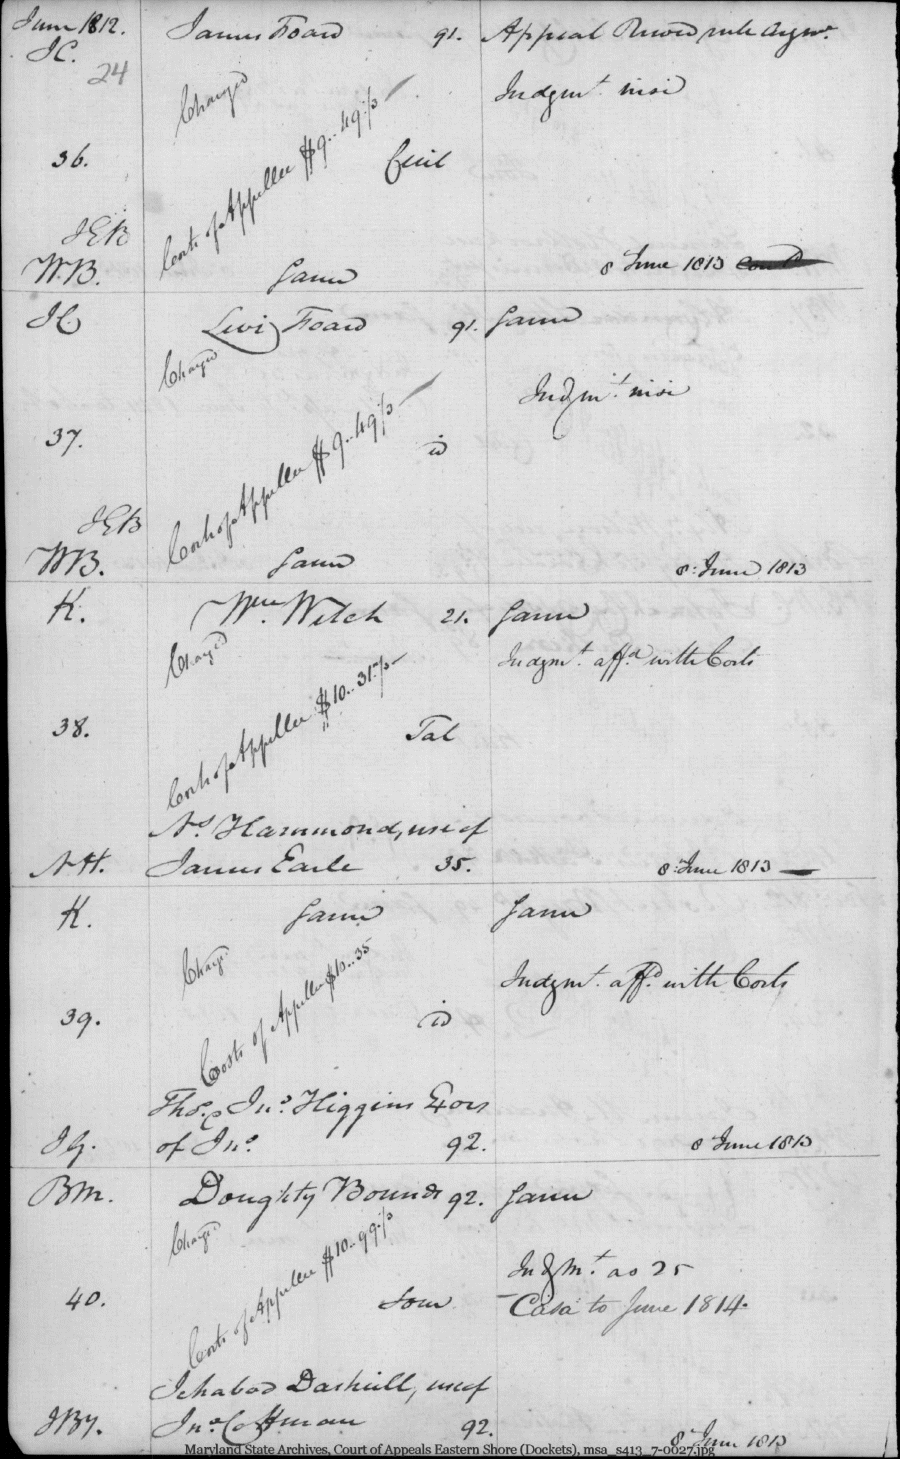 June 1812.
JC.
24
James Foard 91. Appeal Record rule Argmt.
Charged
Judgmt. nisi
36.
Costs of Appellee $9..49 2/3
Cecil
JEB
W.B.
Same
8 June 1813
JC
Levi Foard 91. Same
Charged
Judgmt. nisi
37.
Costs of Appellee $9..49 2/3
id
JEB
WB.
Same
8: June 1813
K.
Wm. Welch 21. Same
Charged
Judgmt. affd. with Costs
38.
Costs of Appellee $10..31
Tal
Ns. Hammond, use of
NH.
James Earle 35.
8: June 1813
K.
Same Same
Charged
Judgmt. affd. with Costs
39.
Costs of Appellee $10..35
id
Thos. & Jno. Higgins Exors
JG.
of Jno. 92.
8 June 1813
BM.
Doughty Bounds 92. Same
Charged
Judgmt. as 25
40.
Costs of Appellee $10..99
Som
Casa to June 1814.
Ichabod Dashiell, use of
JBy.
Jno. Coffman 92.
8 June 1813
Maryland State Archives, Court of Appeals Eastern Shore (Dockets), msa_s413_7-0027.jpg